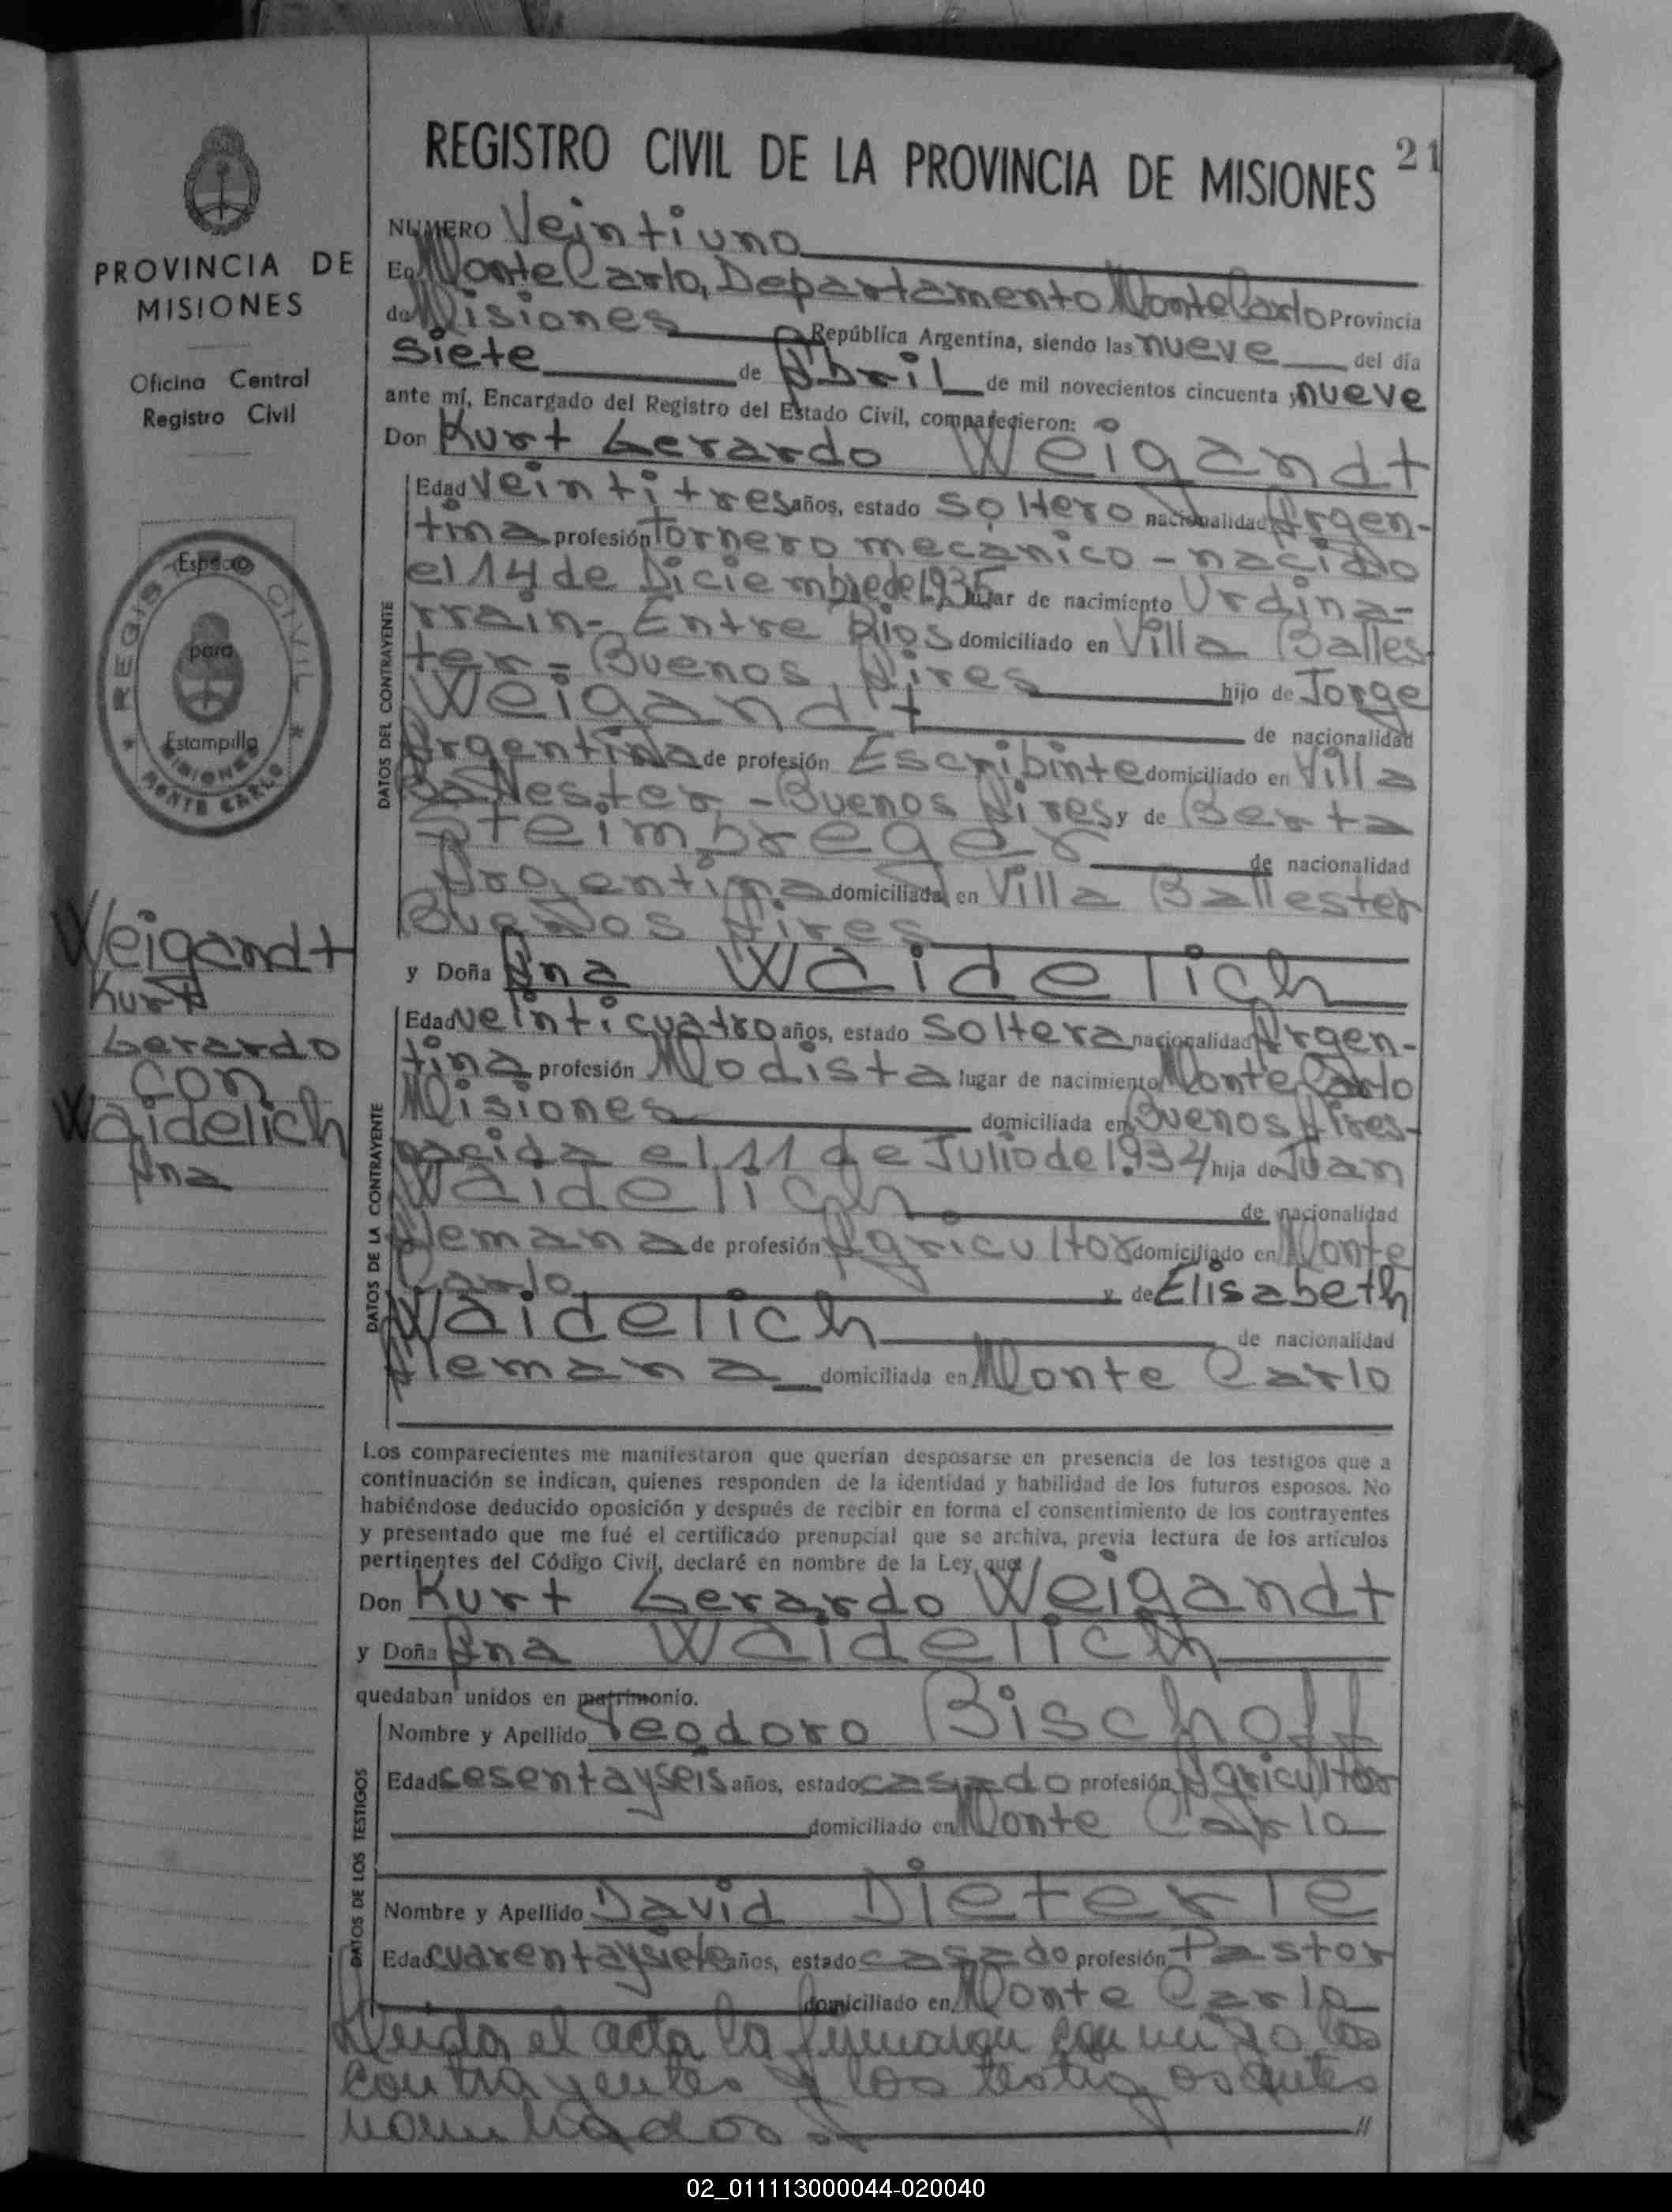 REGISTRO CIVIL DE LA PROVINCIA DE MISIONES 21
PROVINCIA DE
MISIONES
Oficina Central
Registro Civil
REGISTRO CIVIL
Espacio
para
Estampilla
MISIONES
MONTE CARLO
Weigandt
Kurt
Gerardo
con
Waidelich
Ana
NUMERO Veintiuno
En Monte Carlo, Departamento Monte Carlo Provincia
de Misiones República Argentina, siendo las nueve del día
siete de Abril de mil novecientos cincuenta y nueve
ante mí, Encargado del Registro del Estado Civil, comparecieron:
Don Kurt Gerardo Weigandt
DATOS DEL CONTRAYENTE
Edad veintitres años, estado soltero nacionalidad Argen-
tina profesión Tornero mecanico - nacido
el 14 de Diciembre de 1935 lugar de nacimiento Urdina-
rrain - Entre Rios domiciliado en Villa Balles-
ter - Buenos Aires hijo de Jorge
Weigandt de nacionalidad
Argentina de profesión Escribinte domiciliado en Villa
Ballester - Buenos Aires y de Berta
Steimbreger de nacionalidad
Argentina domiciliada en Villa Ballester
Buenos Aires
y Doña Ana Waidelich
DATOS DE LA CONTRAYENTE
Edad veinticuatro años, estado soltera nacionalidad Argen-
tina profesión Modista lugar de nacimiento Monte Carlo
Misiones domiciliada en Buenos Aires-
nacida el 11 de Julio de 1.934 hija de Juan
Waidelich de nacionalidad
Alemana de profesión Agricultor domiciliado en Monte
Carlo y de Elisabeth
Waidelich de nacionalidad
Alemana domiciliada en Monte Carlo
Los comparecientes me manifestaron que querían desposarse en presencia de los testigos que a
continuación se indican, quienes responden de la identidad y habilidad de los futuros esposos. No
habiéndose deducido oposición y después de recibir en forma el consentimiento de los contrayentes
y presentado que me fué el certificado prenupcial que se archiva, previa lectura de los artículos
pertinentes del Código Civil, declaré en nombre de la Ley, que
Don Kurt Gerardo Weigandt
y Doña Ana Waidelich
quedaban unidos en matrimonio.
DATOS DE LOS TESTIGOS
Nombre y Apellido Teodoro Bischoff
Edad sesentayseis años, estado casado profesión Agricultor
domiciliado en Monte Carlo
Nombre y Apellido David Dieterle
Edad cuarentaysiete años, estado casado profesión Pastor
domiciliado en Monte Carlo
Leida el acta la firmaron con migo los
contrayentes y los testigos antes
nombrados.
02_011113000044-020040